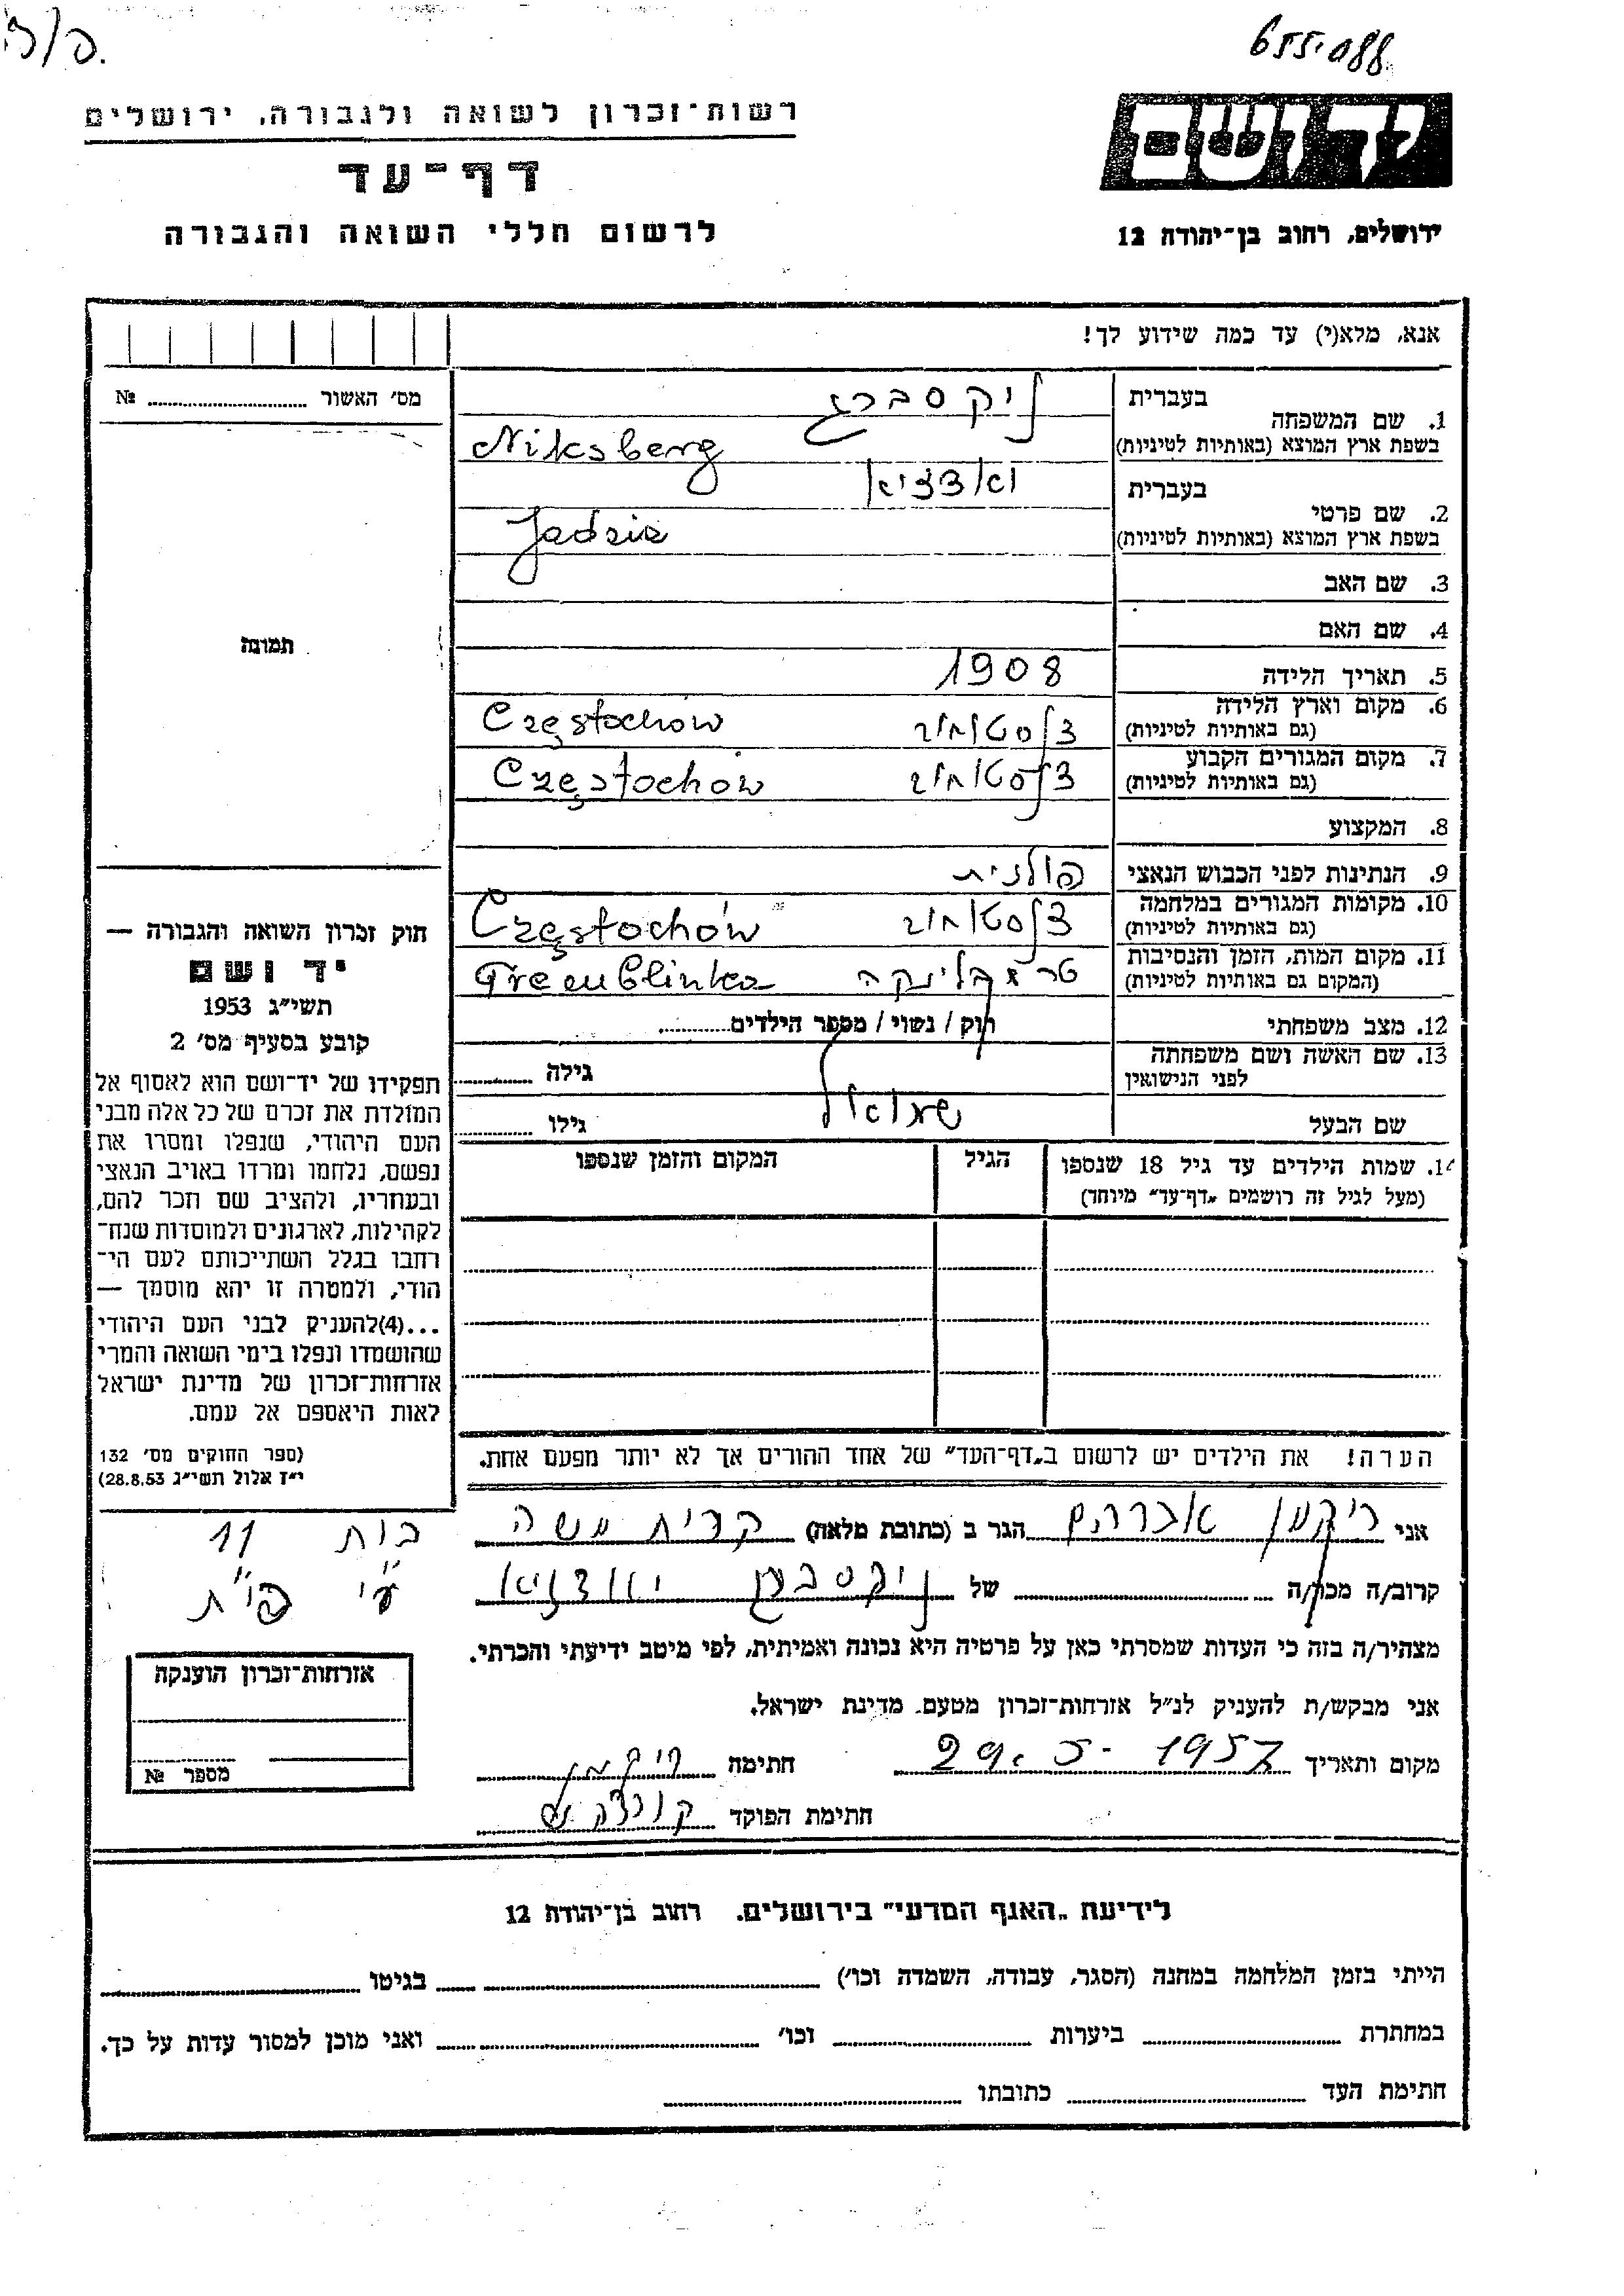 655088
רשות־זכרון לשואה ולגבורה, ירושלים
דף־עד
לרשום חללי השואה והגבורה
יד ושם
ירושלים, רחוב בן־יהודה 12
אנא, מלא(י) עד כמה שידוע לך!
מס׳ האשור № ....................
תמונה
בעברית
1. שם המשפחה ניקסברג
בשפת ארץ המוצא (באותיות לטיניות) Niksberg
בעברית
2. שם פרטי יאדזיא
בשפת ארץ המוצא (באותיות לטיניות) Jadzia
3. שם האב
4. שם האם
5. תאריך הלידה 1908
6. מקום וארץ הלידה צ'נסטוחוב Częstochów
(גם באותיות לטיניות)
7. מקום המגורים הקבוע צ'נסטוחוב Częstochów
(גם באותיות לטיניות)
8. המקצוע
9. הנתינות לפני הכבוש הנאצי פולנית
10. מקומות המגורים במלחמה צ'נסטוחוב Częstochów
(גם באותיות לטיניות)
11. מקום המות, הזמן והנסיבות טרמבלינקה Treמublinka
(המקום גם באותיות לטיניות)
12. מצב משפחתי רוק / נשוי / מספר הילדים............
13. שם האשה ושם משפחתה
לפני הנישואין גילה ............
שם הבעל שמואל גילו ............
14. שמות הילדים עד גיל 18 שנספו הגיל המקום והזמן שנספו
(מעל לגיל זה רושמים „דף־עד״ מיוחד)
הערה! את הילדים יש לרשום ב„דף־העד״ של אחד ההורים אך לא יותר מפעם אחת.
חוק זכרון השואה והגבורה —
יד ושם
תשי״ג 1953
קובע בסעיף מס׳ 2
תפקידו של יד־ושם הוא לאסוף אל
המולדת את זכרם של כל אלה מבני
העם היהודי, שנפלו ומסרו את
נפשם, נלחמו ומרדו באויב הנאצי
ובעוזריו, ולהציב שם וזכר להם,
לקהילות, לארגונים ולמוסדות שנח־
רחבו בגלל השתייכותם לעם הי־
הודי, ולמטרה זו יהא מוסמך —
...(4)להעניק לבני העם היהודי
שהושמדו ונפלו בימי השואה והמרי
אזרחות־זכרון של מדינת ישראל
לאות היאספם אל עמם.
(ספר החוקים מס׳ 132
י״ז אלול תשי״ג 28.8.53)
אני ריקמן אברהם הגר ב (כתובת מלאה) קרית משה
11
קרוב/ה מכר/ה ............ של ניקסברג יאדזיא
מצהיר/ה בזה כי העדות שמסרתי כאן על פרטיה היא נכונה ואמיתית, לפי מיטב ידיעתי והכרתי.
אני מבקש/ת להעניק לנ״ל אזרחות־זכרון מטעם מדינת ישראל.
מקום ותאריך 29.5-1957 חתימה ריקמן
חתימת הפוקד
אזרחות־זכרון הוענקה
מספר №
לידיעת „האגף המדעי״ בירושלים, רחוב בן־יהודה 12
הייתי בזמן המלחמה במחנה (הסגר, עבודה, השמדה וכו׳) ............ בגיטו ............
במחתרת ............ ביערות ............ וכו׳ ............ ואני מוכן למסור עדות על כך.
חתימת העד ............ כתובתו ............